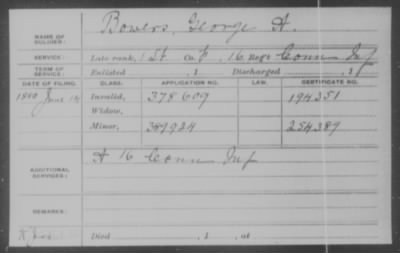 NAME OF SOLDIER: Bowers, George A.
SERVICE: Late rank, 1 St Co. F, 16 Reg't Conn Inf
TERM OF SERVICE: Enlisted , 1 Discharged , 1
DATE OF FILING. CLASS. APPLICATION NO. LAW. CERTIFICATE NO.
1880 June 14 Invalid, 378609 194351
Widow,
Minor, 389924 254389
ADDITIONAL SERVICES: A 16 Conn Inf
REMARKS:
Died , 1 , at